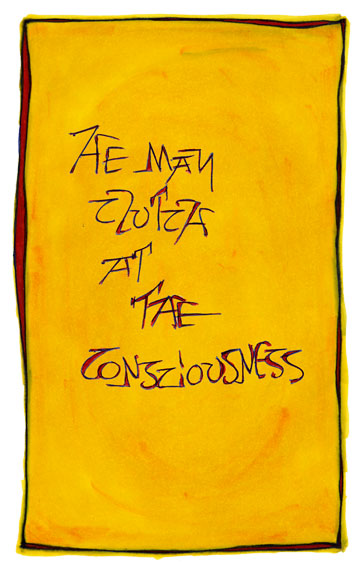 HE MAY
CLUTCH
AT
THE
CONSCIOUSNESS